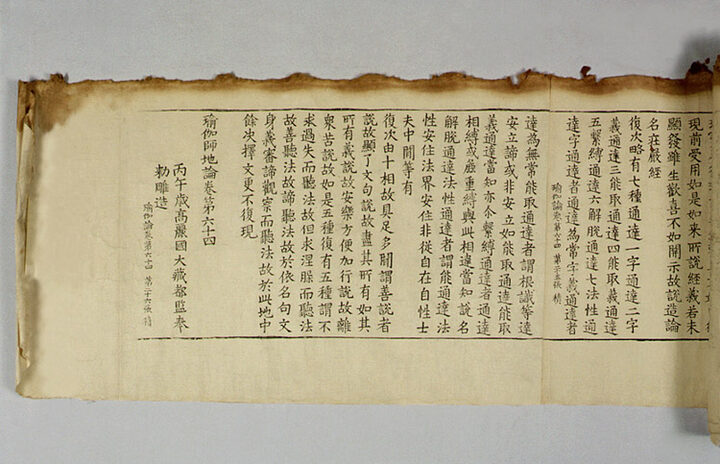 現前受用如是如來所說經義若未
顯發雖生歡喜不如開示故說造論
名莊嚴經
復次略有七種通達一字通達二字
義通達三能取通達四能取義通達
五繫縛通達六解脫通達七法性通
達字通達者通達為常字義通達者
瑜伽論卷第六十四 第二十五張 積
達為無常能取通達者謂根識等達
安立諦或非安立如能取通達能取
義通達當知亦尒繫縛通達者通達
相縛或麁重縛與此相違當知說名
解脫通達法性通達者謂能通達法
性安住法界安住非從自在自性士
夫中間等有
復次由十相故具足多聞謂善說者
說故顯了文句說故盡其所有如其
所有義說故安樂方便加行說故離
衆苦說故如是五種復有五種謂不
求過失而聽法故但求涅槃而聽法
故善聽法故諦聽法故於依名句文
身義審諦觀察而聽法故於此地中
餘決擇文更不復現
瑜伽師地論卷第六十四
丙午歲高麗國大藏都監奉
勑雕造
瑜伽論卷第六十四 第二十六張 積